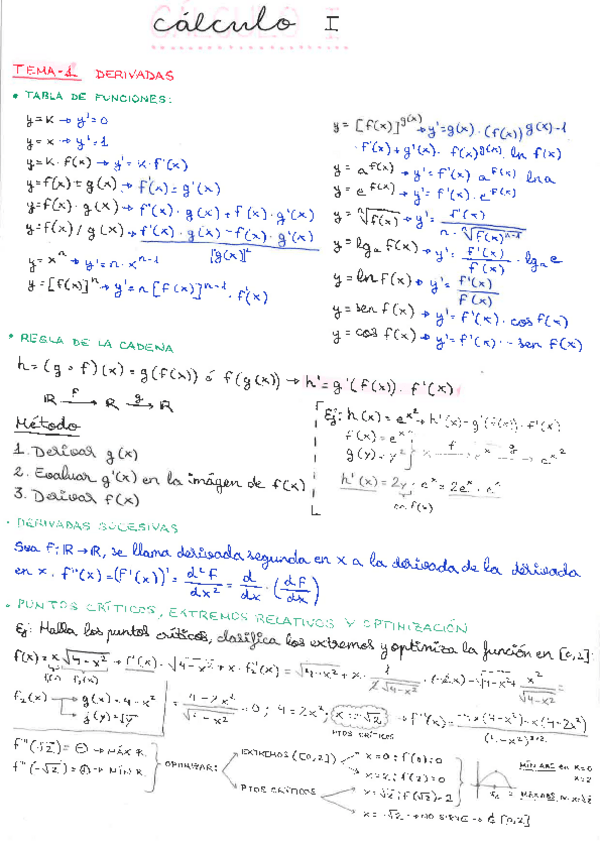 Cálculo I
TEMA-1 DERIVADAS
• TABLA DE FUNCIONES:
y=K → y'=0
y=x → y'=1
y=K·f(x) → y'=K·f'(x)
y=f(x)±g(x) → f'(x)±g'(x)
y=f(x)·g(x) → f'(x)·g(x)+f(x)·g'(x)
y=f(x)/g(x) → f'(x)·g(x)-f(x)·g'(x) / [g(x)]²
y=xⁿ → y'=n·xⁿ⁻¹
y=[f(x)]ⁿ → y'=n[f(x)]ⁿ⁻¹·f'(x)
y=[f(x)]^g(x) → y'=g(x)·(f(x))^g(x)-1
·f'(x)+g'(x)·f(x)^g(x)·ln f(x)
y=a^f(x) → y'=f'(x) a^f(x) ln a
y=e^f(x) → y'=f'(x)·e^f(x)
y=ⁿ√f(x) → y'= f'(x) / n·ⁿ√f(x)ⁿ⁻¹
y=lgₐ f(x) → y'= f'(x) / f(x) · lgₐ e
y=ln f(x) → y'= f'(x) / f(x)
y=sen f(x) → y'=f'(x)·cos f(x)
y=cos f(x) → y'=f'(x)·-sen f(x)
• REGLA DE LA CADENA
h=(g∘f)(x)=g(f(x)) ó f(g(x)) → h'=g'(f(x))·f'(x)
ℝ f→ ℝ g→ ℝ
Método
1. Derivar g(x)
2. Evaluar g'(x) en la imágen de f(x)
3. Derivar f(x)
Ej: h(x)=e^x² → h'(x)=g'(f(x))·f'(x)
f(x)=eˣ
g(y)=y²
h'(x)=2y·eˣ=2eˣ·eˣ
en f(x)
• DERIVADAS SUCESIVAS
Sea f:ℝ→ℝ, se llama derivada segunda en x a la derivada de la derivada
en x. f''(x)=(f'(x))'= d²f/dx² = d/dx·(df/dx)
• PUNTOS CRÍTICOS, EXTREMOS RELATIVOS Y OPTIMIZACIÓN
Ej: Halla los puntos críticos, clasifica los extremos y optimiza la función en [0,2]:
f(x)=x√4-x²
f₂(x) → g(x)=4-x²
→ j(y)=√y
=0; 4=2x²;
PTOS CRÍTICOS
f''(√2)=⊖ → MÁX R.
f''(-√2)=⊕ → MÍN R.
OPTIMIZAR:
EXTREMOS ([0,2])
x=0; f(0)=0
x=2; f(2)=0
PTOS CRÍTICOS
x=√2; f(√2)=2
x=-√2 → NO SIRVE → ∉ [0,2]
MÍN ABS en x=0
x=2
MÁX ABS. en x=√2